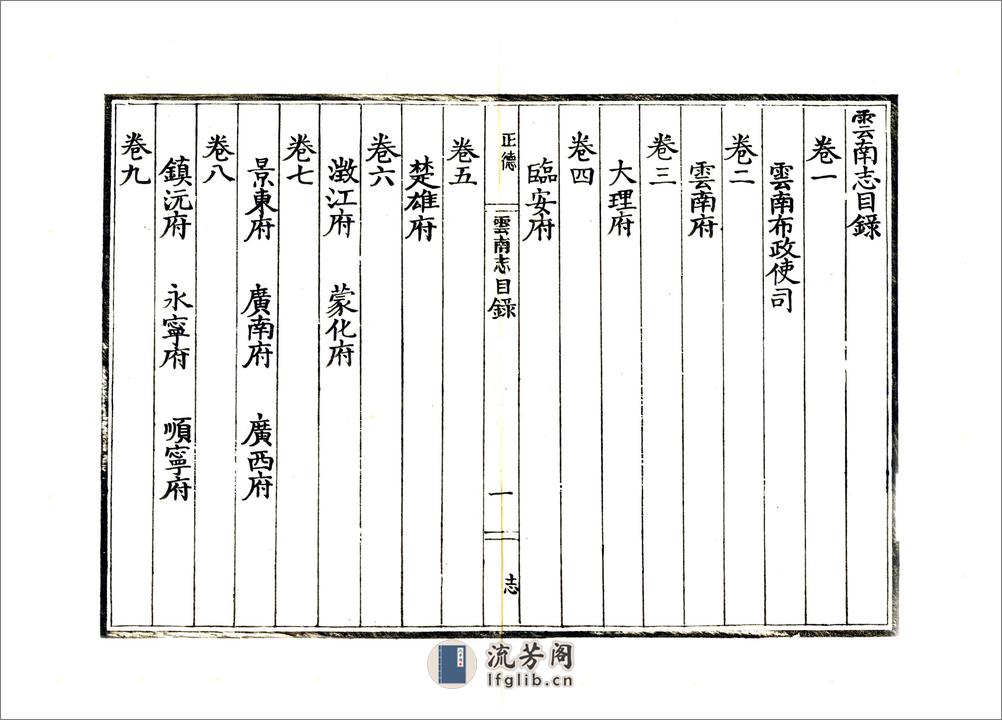 雲南志目錄
卷一
雲南布政使司
卷二
雲南府
卷三
大理府
卷四
臨安府
正德
雲南志目錄
一
志
卷五
楚雄府
卷六
澂江府 蒙化府
卷七
景東府 廣南府 廣西府
卷八
鎮沅府 永寧府 順寧府
卷九
流芳阁
lfglib.cn